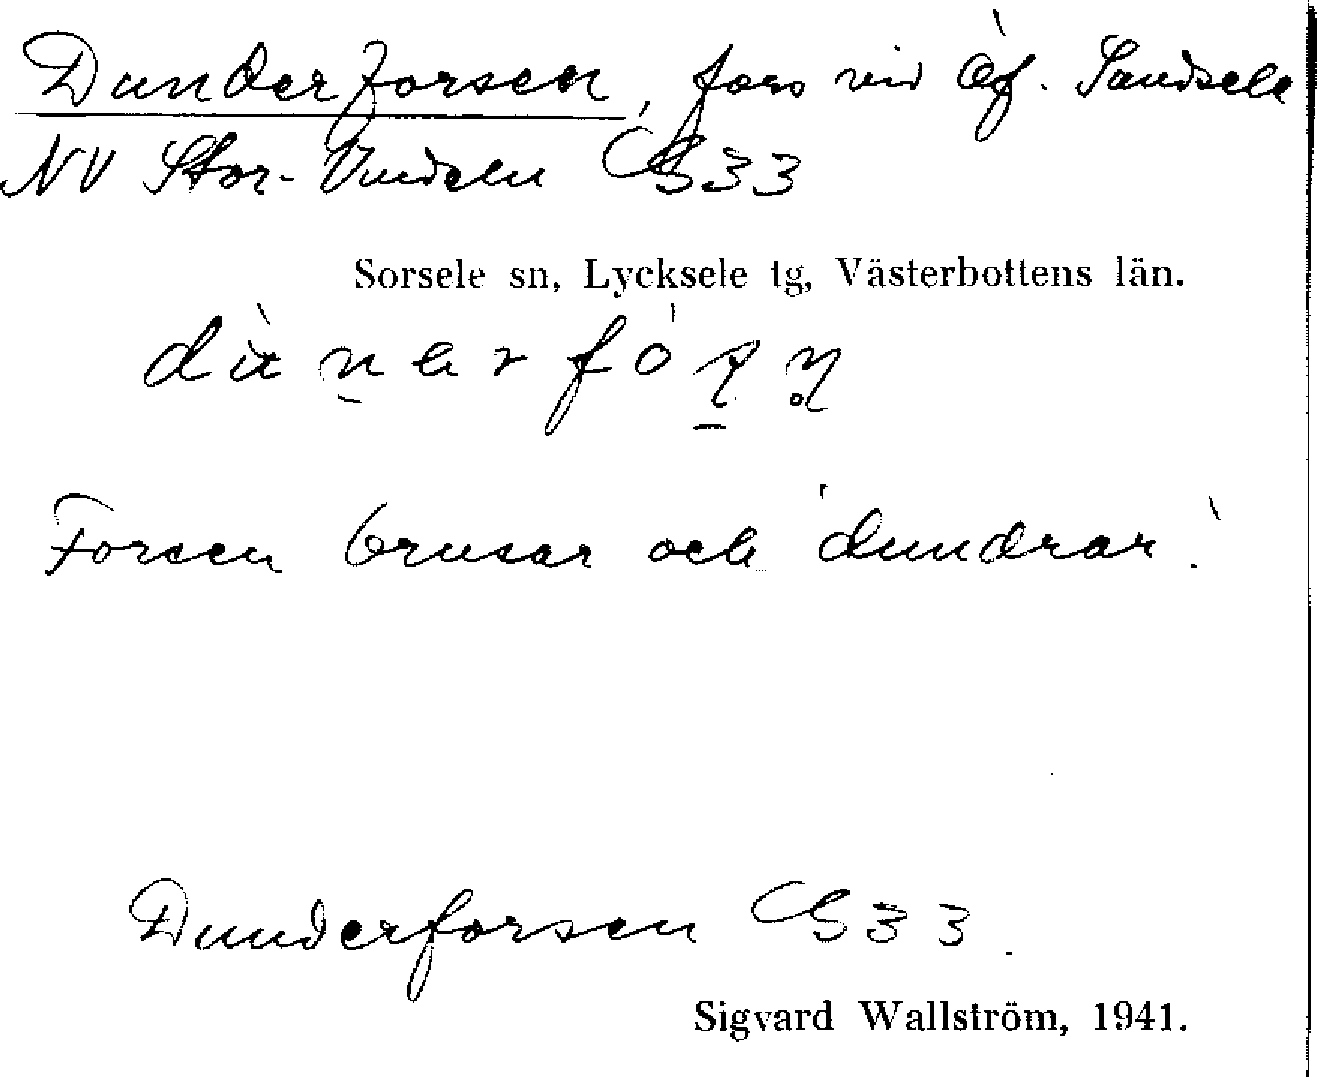 Dunderforsen, fors vid Öf. Sandsele
NV Stor-Vindeln GS 33
Sorsele sn, Lycksele tg, Västerbottens län.
Forsen brusar och 'dundrar'.
Dunderforsen GS 33.
Sigvard Wallström, 1941.